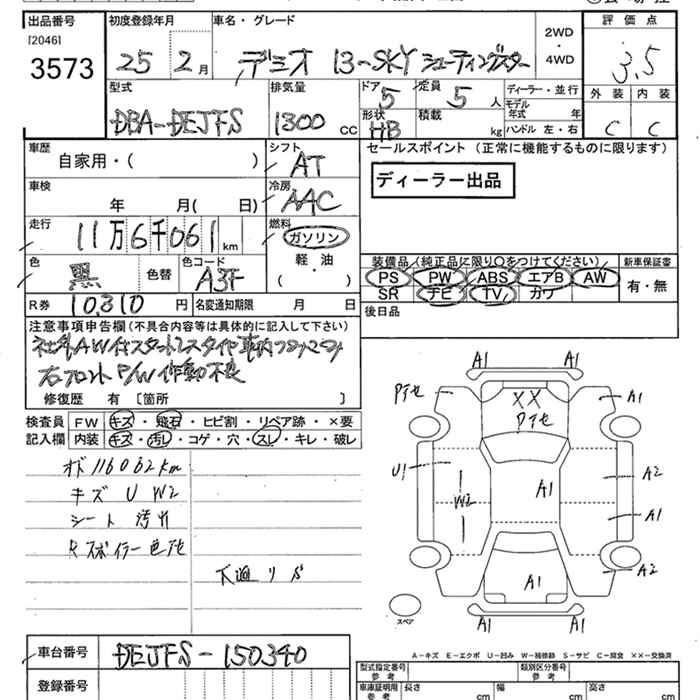 出品番号 初度登録年月 車名・グレード 2WD・4WD 評価点
[2046]
3573
25 2月 デミオ 13-SKY シューティングスター
3.5
型式 排気量 ドア 5 定員 5人 ディーラー・並行 外装 内装
DBA-DEJFS 1300 cc 形状 HB 積載 kg モデル年式 年 C C
ハンドル 左・右
車歴 シフト セールスポイント (正常に機能するものに限ります)
自家用・( ) AT
ディーラー出品
車検 冷房
年 月( 日) AAC
走行 11万6千061km 燃料
ガソリン
軽・油
( )
色 黒 色替 色コード A3F
装備品(純正品に限り○をつけてください) 新車保証書
PS PW ABS エアB AW 有・無
SR ナビ TV カワ
R券 10,310円 名変通知期限 月 日
後日品
注意事項申告欄(不具合内容等は具体的に記入して下さい)
社外AW付スタットレスタイヤ車内
右フロントP/W作動不良
修復歴 有 〔箇所 〕
検査員記入欄
FW キズ・飛石・ヒビ割・リペア跡・×要
内装 キズ・汚レ・コゲ・穴・スレ・キレ・破レ
オド 116062km
キズ U W2
シート 汚れ
Rスポイラー色
下廻り サバ
A1 A1
A1
XX
U1
W2
A1
A2
A1
A2
A1
A1 A1
スペア
A-キズ E-エクボ U-凹み W-補修跡 S-サビ C-腐食 XX-交換済
車台番号 DEJFS-150340
登録番号
型式指定番号 参考 類別区分番号 参考
車庫証明用 参考 長さ cm 幅 cm 高さ cm